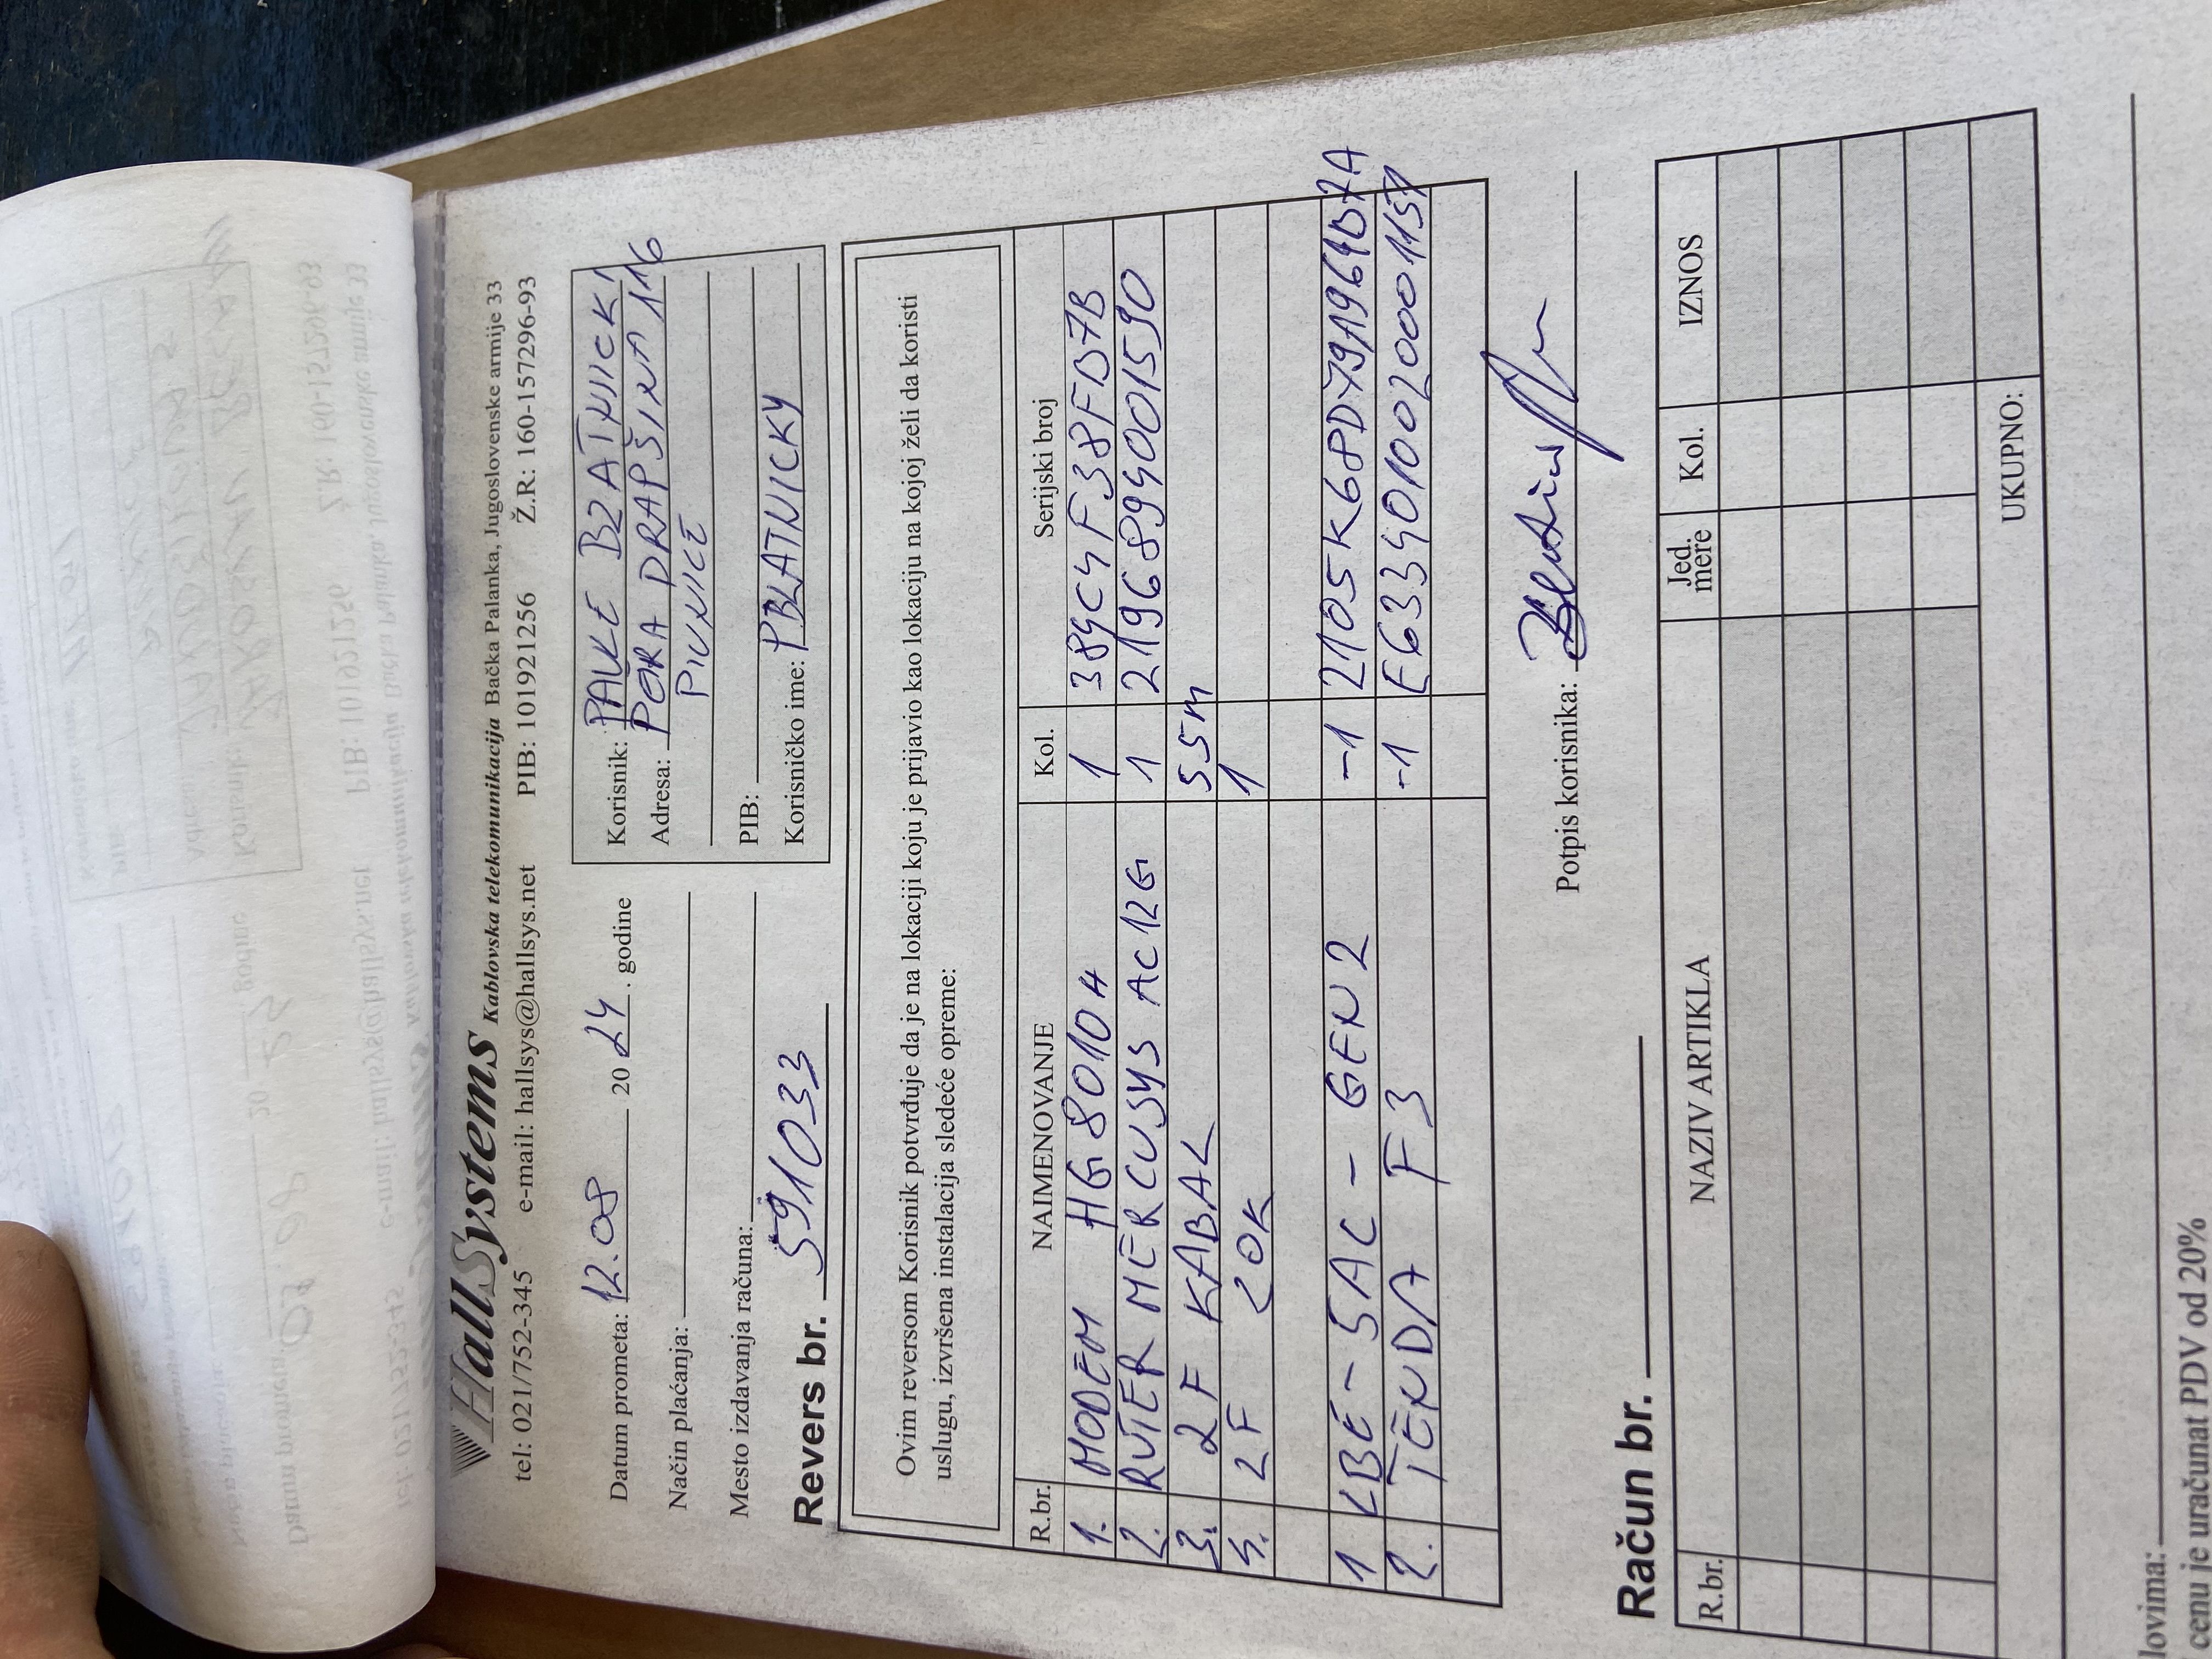 HallSystems Kablovska telekomunikacija Bačka Palanka, Jugoslovenske armije 33
tel: 021/752-345 e-mail: hallsys@hallsys.net PIB: 101921256 Ž.R: 160-157296-93
Datum prometa: 12.08 20 24. godine
Način plaćanja:
Mesto izdavanja računa:
Revers br. 591033
Korisnik: PAVLE BLATNICKI
Adresa: PERA DRAPŠINA 116
PIVNICE
PIB:
Korisničko ime: PBLATNICKY
Ovim reversom Korisnik potvrđuje da je na lokaciji koju je prijavio kao lokaciju na kojoj želi da koristi
uslugu, izvršena instalacija sledeće opreme:
R.br. NAIMENOVANJE Kol. Serijski broj
1. MODEM HG8010H 1 389C4F38FB7B
2. RUTER MERCUSYS AC12G 1 2196899001590
3. 2F KABAL 55m
4. 2F LOK 1
1 LBE-5AC-GEN2 -1 2105K68D791964D7A
2. TENDA F3 -1 E6339010020001151
Potpis korisnika:
Račun br.
R.br. NAZIV ARTIKLA Jed. mere Kol. IZNOS
UKUPNO:
lovima:
cenu je uračunat PDV od 20%